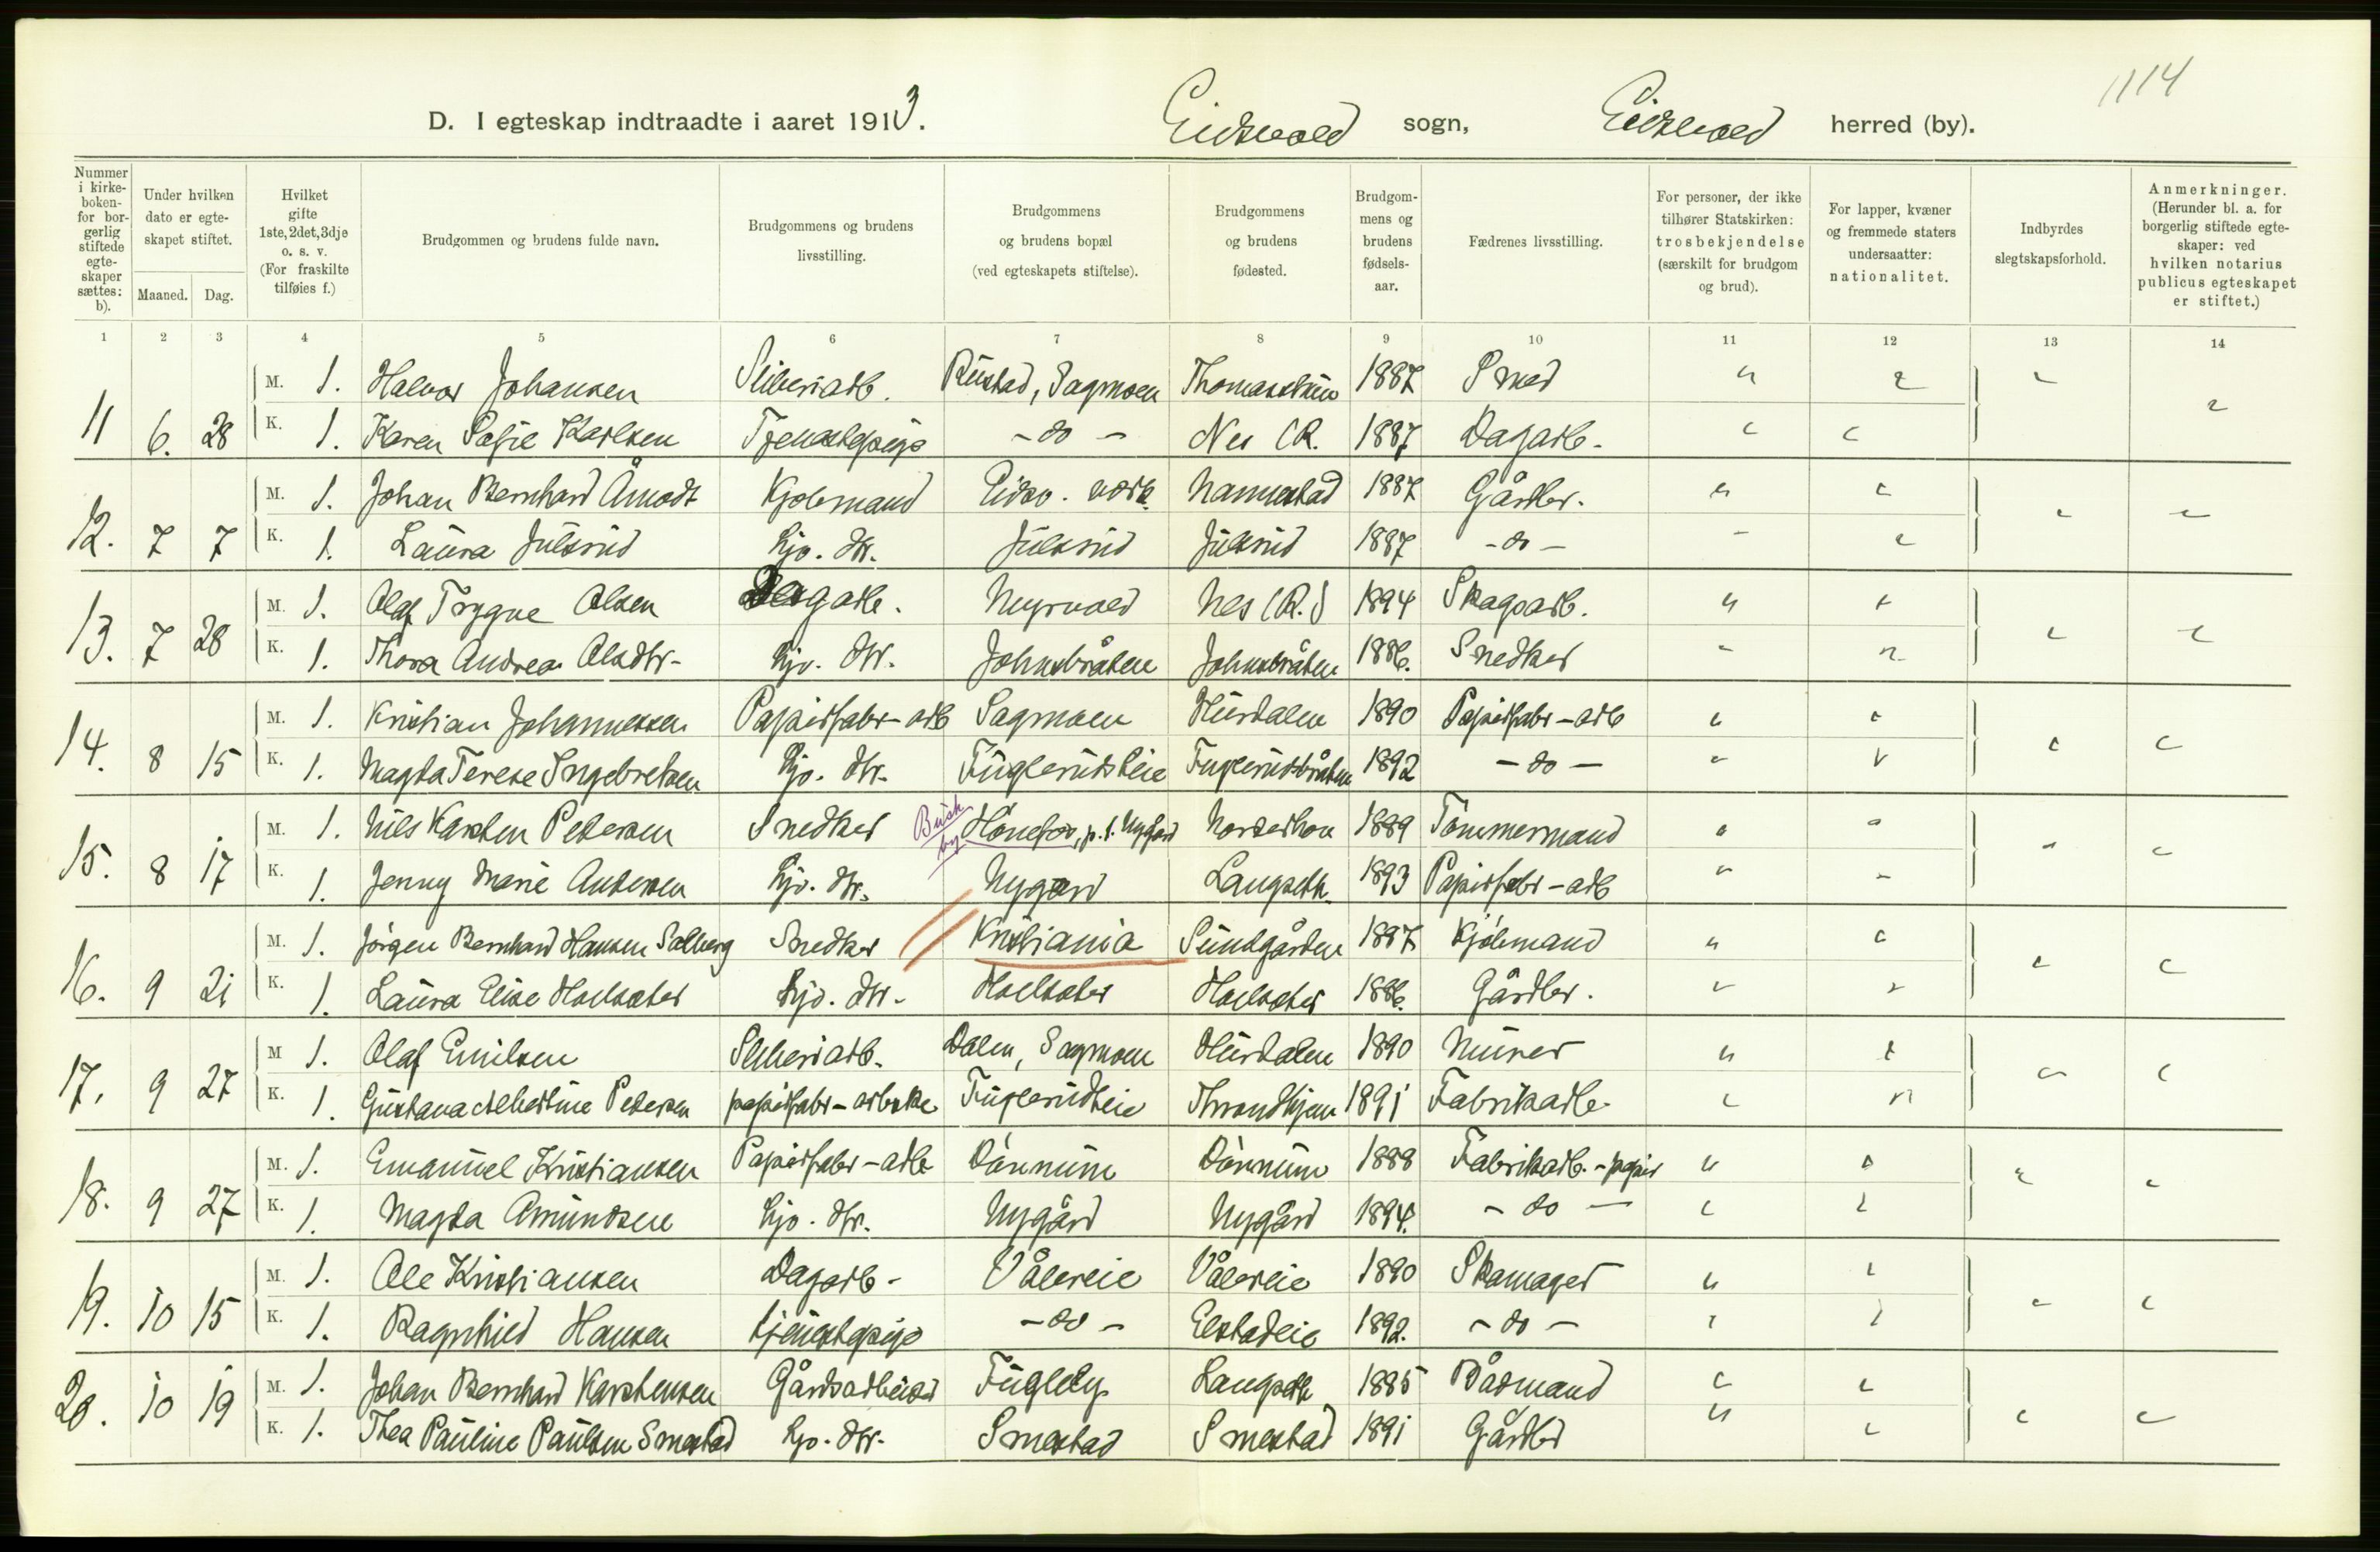 1114
D. I egteskap indtraadte i aaret 1913. Eidsvold sogn, Eidsvold herred (by).
Nummer i kirke-boken- for bor-gerlig stiftede egte-skaper sættes: b).
Under hvilken dato er egte-skapet stiftet.
Maaned. Dag.
Hvilket gifte 1ste, 2det, 3dje o. s. v. (For fraskilte tilføies f.)
Brudgommen og brudens fulde navn.
Brudgommens og brudens livsstilling.
Brudgommens og brudens bopæl (ved egteskapets stiftelse).
Brudgommens og brudens fødested.
Brudgom-mens og brudens fødsels-aar.
Fædrenes livsstilling.
For personer, der ikke tilhører Statskirken: trosbekjendelse (særskilt for brudgom og brud).
For lapper, kvæner og fremmede staters undersaatter: nationalitet.
Indbyrdes slegtskapsforhold.
Anmerkninger. (Herunder bl. a. for borgerlig stiftede egte-skaper: ved hvilken notarius publicus egteskapet er stiftet.)
1 2 3 4 5 6 7 8 9 10 11 12 13 14
M. 1. Halvor Johansen Sliberiarb. Rustad, Sagmoen 1887 Smed
11 6. 28 K. 1. Karen Sofie Karlsen Tjenestepige - do - Nes (R. 1887 Dagarb.
M. 1. Johan Bernhard Åmodt Kjøbmand Eidsv. værk. Nannestad 1887 Gårdbr.
12. 7 7 K. 1. Laura Julsrud Hjv. dtr. Julsrud Julsrud 1887 - do -
M. 1. Olaf Trygve Olsen Dagarb. Myrvold Nes (R.) 1894 Skogsarb.
13. 7 28 K. 1. Thora Andrea Olsdtr. Hjv. dtr. Johnsbråten Johnsbråten 1886. Snedker
M. 1. Kristian Johannessen Papirfabr-arb Sagmoen Hurdalen 1890 Papirfabr-arb
14. 8 15 K. 1. Magda Terese Ingebretsen Hjv. dtr. Fuglerudseie Fuglerudsbråten 1892 - do -
M. 1. Nils Karsten Petersen Snedker Busk by Hönefos, p. t. Nygård Norderhov 1889 Tømmermand
15. 8 17 K. 1. Jenny Marie Andersen Hjv. dtr. Nygård Langseth. 1893 Papirfabr-arb
M. 1. Jörgen Bernhard Hansen Solberg Snedker Kristiania Sundgården 1887 Kjöbmand
16. 9 21 K. 1. Laura Elise Holsæter Hjv. dtr. Holsæter Holsæter 1886. Gårdbr.
M 1. Olaf Emilsen Sliberiarb. Dalen, Sagmoen Hurdalen 1890 Murer
17. 9 27 K. 1. Gustava Albertine Petersen papirfabr-arbske Fuglerudeie Throndhjem 1891 Fabrikarb.
M. 1. Emanuel Kristiansen Papirfabr-arb Dönnum Dönnum 1888 Fabrikarb.-papir
18. 9 27 K. 1. Magda Amundsen Hjv. dtr. Nygård Nygård 1894. - do -
M. 1. Ole Kristiansen Dagarb. Vålereie Vålereie 1890 Skomager
19. 10 15 K. 1. Ragnhild Hansen tjenestepige - do - Elstadeie 1892. - do -
M. 1. Johan Bernhard Karstensen Gårdsarbeider Fugleby Langseth 1885 Rådmand
20. 10 19 K. 1. Thea Pauline Paulsen Smestad Hjv. dtr. Smestad Smestad 1891 Gårdbr